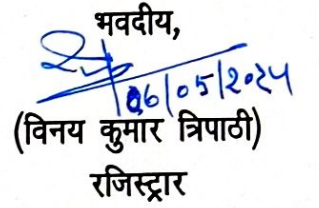 भवदीय,
06/05/2024
(विनय कुमार त्रिपाठी)
रजिस्ट्रार